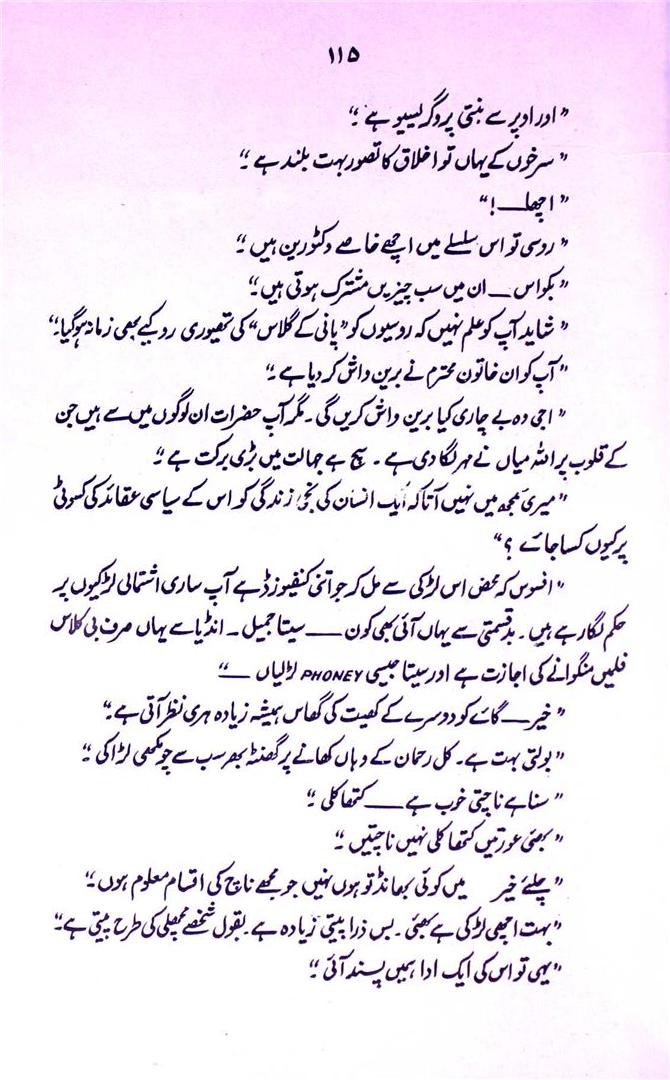 ۱۱۵
”اور اوپر سے بنتی پروگریسیو ہے۔“
”سرخوں کے یہاں تو اخلاق کا تصور بہت بلند ہے۔“
”اچھا——!“
”روسی تو اس سلسلے میں اچھے خاصے وکٹورین ہیں۔“
”بکواس — ان میں سب چیزیں مشترک ہوتی ہیں۔“
”شاید آپ کو علم نہیں کہ روسیوں کو ”پانی کے گلاس“ کی تھیوری رد کیے بھی زمانہ ہو گیا۔“
”آپ کو ان خاتون محترم نے برین واش کر دیا ہے۔“
”اجی وہ بے چاری کیا برین واش کریں گی۔ مگر آپ حضرات ان لوگوں میں سے ہیں جن
کے قلوب پر اللہ میاں نے مہر لگا دی ہے۔ سچ ہے جہالت میں بڑی برکت ہے۔“
”میری سمجھ میں نہیں آتا کہ ایک انسان کی نجی زندگی کو اس کے سیاسی عقائد کی کسوٹی
پر کیوں کسا جائے؟“
”افسوس کہ محض اس لڑکی سے مل کر جو اتنی کنفیوزڈ ہے آپ ساری اشتمالی لڑکیوں پر
حکم لگا رہے ہیں۔ بدقسمتی سے یہاں آئی بھی کون —— سیتا جمیل۔ انڈیا سے یہاں صرف بی کلاس
فلمیں منگوانے کی اجازت ہے اور سیتا جیسی PHONEY لڑکیاں ——“
”خیر —— گائے کو دوسرے کے کھیت کی گھاس ہمیشہ زیادہ ہری نظر آتی ہے۔“
”بولتی بہت ہے۔ کل رحمان کے وہاں کھانے پر گھنٹہ بھر سب سے چومکھی لڑا کی۔“
”سنا ہے ناچتی خوب ہے —— کتھا کلی۔“
”بھئی عورتیں کتھا کلی نہیں ناچتیں۔“
”چلئے خیر میں کوئی بھانڈ تو ہوں نہیں جو مجھے ناچ کی اقسام معلوم ہوں۔“
”بہت اچھی لڑکی ہے بھئی۔ بس ذرا پیتی زیادہ ہے بقول شخصے مچھلی کی طرح پیتی ہے۔“
”یہی تو اس کی ایک ادا ہمیں پسند آئی۔“